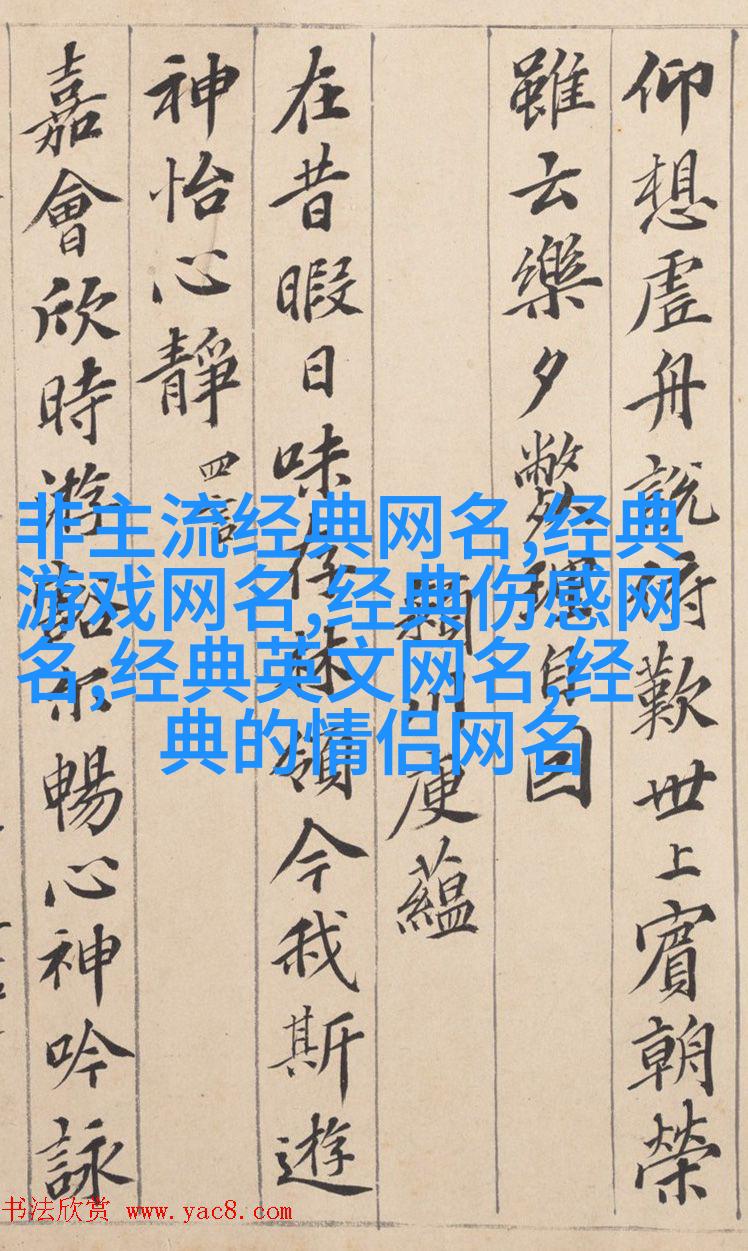 仰想虛舟說俯歎世上賓朝榮
雖云樂夕斃理自因
潁川庾蘊
在昔暇日味存林嶺今我斯遊
神怡心靜 四言
嘉會欣時游豁尓暢心神吟詠
非主流经典网名,经典
游戏网名,经典伤感网
名,经典英文网名,经
典的情侣网名
书法欣赏 www.yac8.com